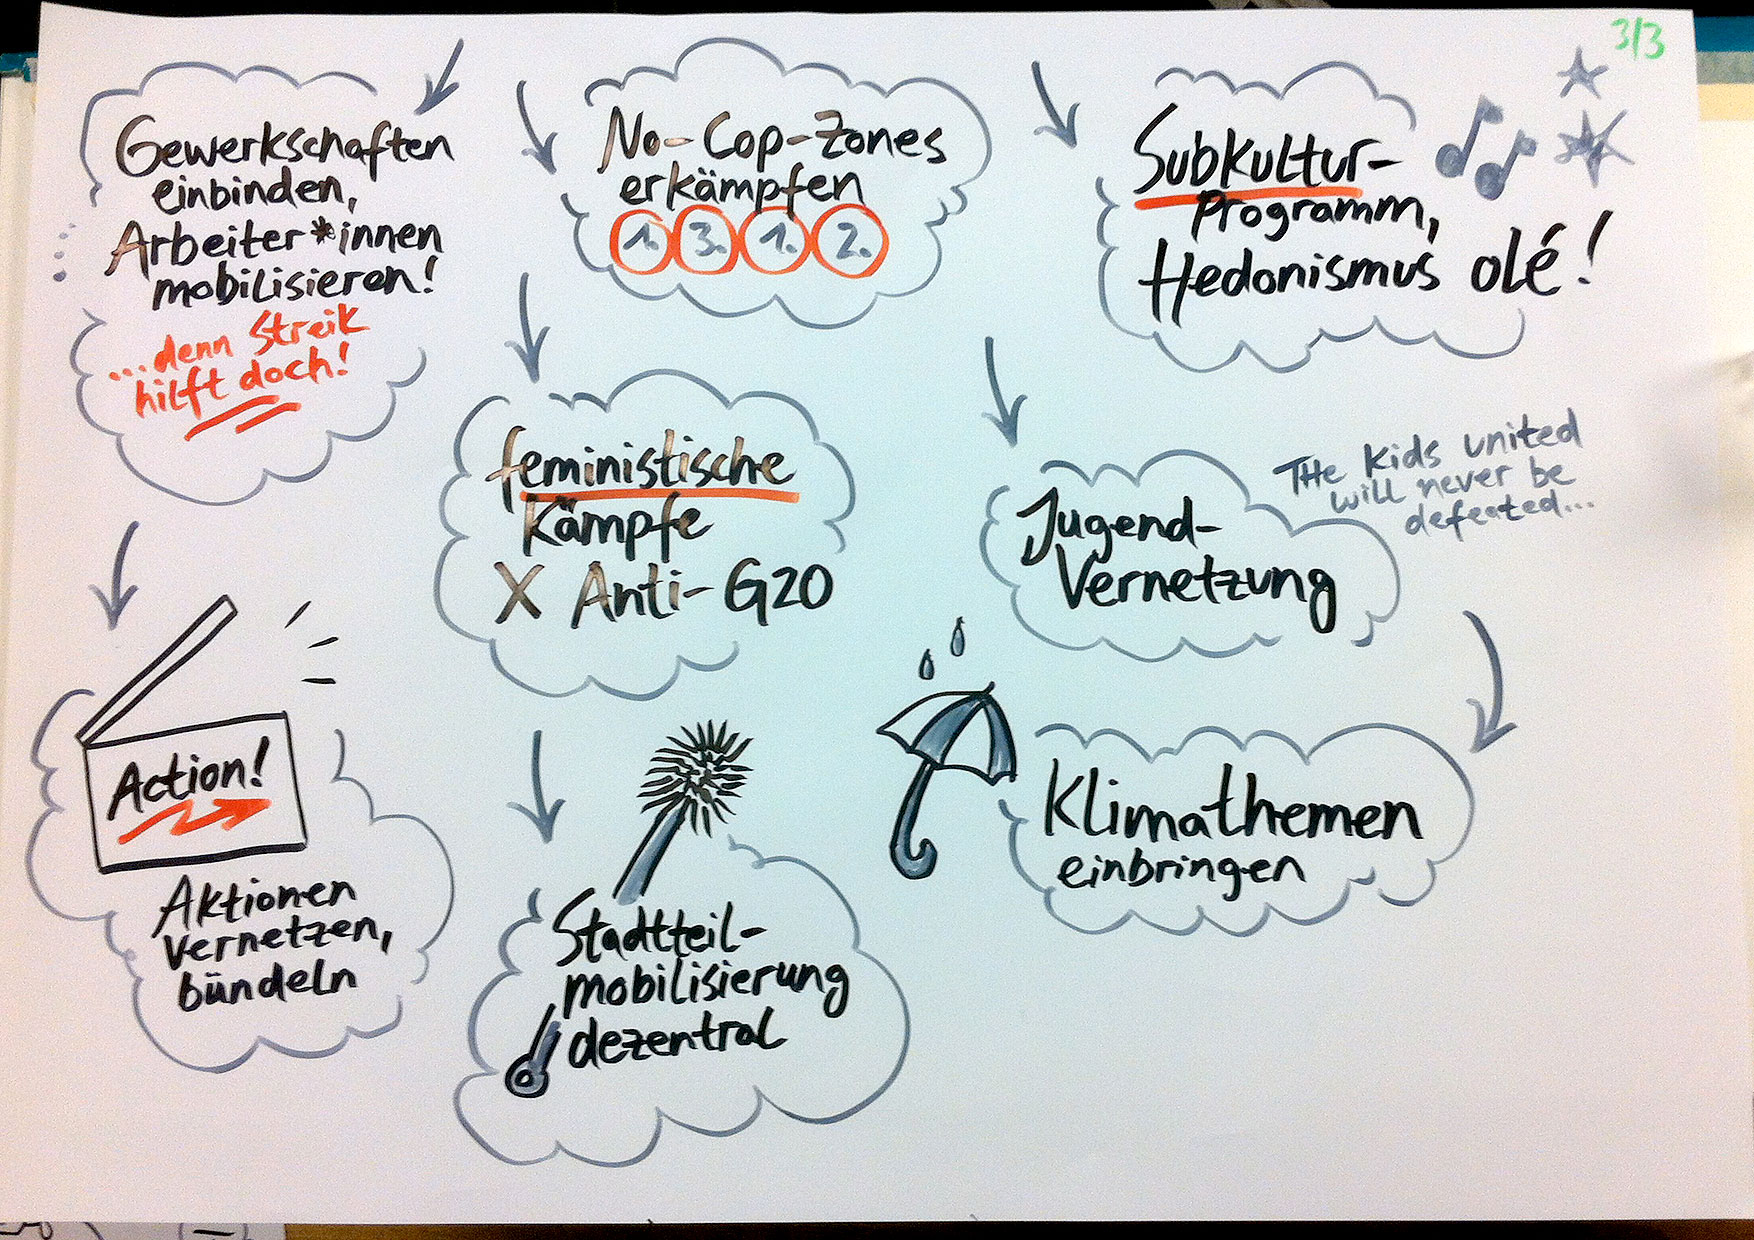 3/3
Gewerkschaften
einbinden,
Arbeiter*innen
mobilisieren!
...denn Streik
hilft doch!
No-Cop-Zones
erkämpfen
1. 3. 1. 2.
Subkultur-
Programm,
Hedonismus olé!
feministische
Kämpfe
X Anti-G20
The Kids united
will never be
defeated...
Jugend-
Vernetzung
Action!
Aktionen
vernetzen,
bündeln
Stadtteil-
mobilisierung
dezentral
Klimathemen
einbringen